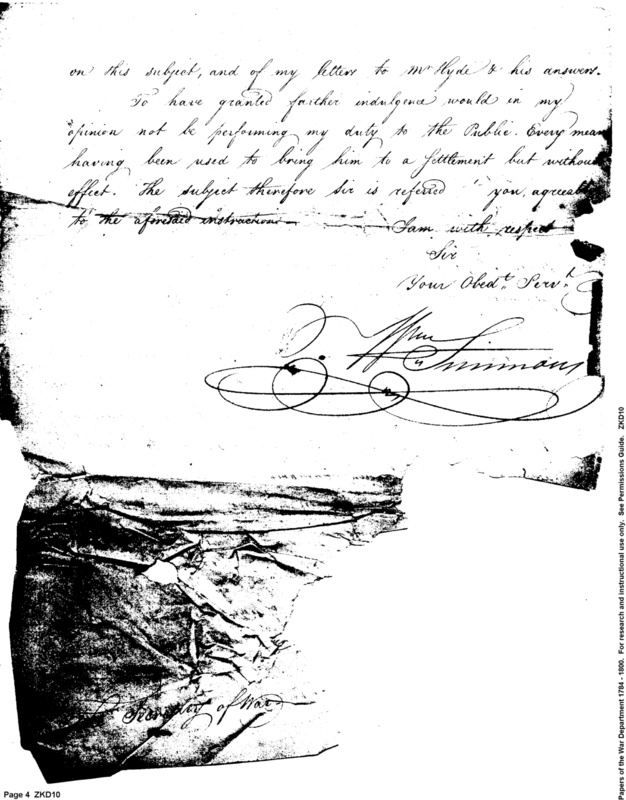 on this subject, and of my letters to Mr Hyde & his answers.
To have granted farther indulgence would in my
opinion not be performing my duty to the Public. Every mean
having been used to bring him to a Settlement but without
effect. The subject therefore Sir is referred you, agreeab
to the aforesaid instructions
I am with respect
Sir
Your Obedt. Servt.
Wm Simmons
Secretary of War
Page 4 ZKD10
Papers of the War Department 1784 - 1800. For research and instructional use only. See Permissions Guide. ZKD10